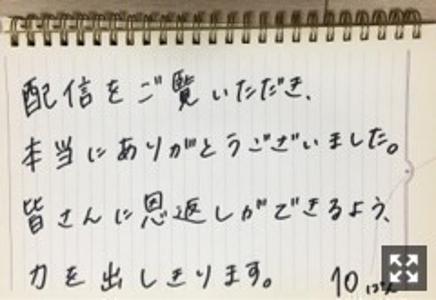 配信をご覧いただき、
本当にありがとうございました。
皆さんに恩返しができるよう、
力を出しきります。 10